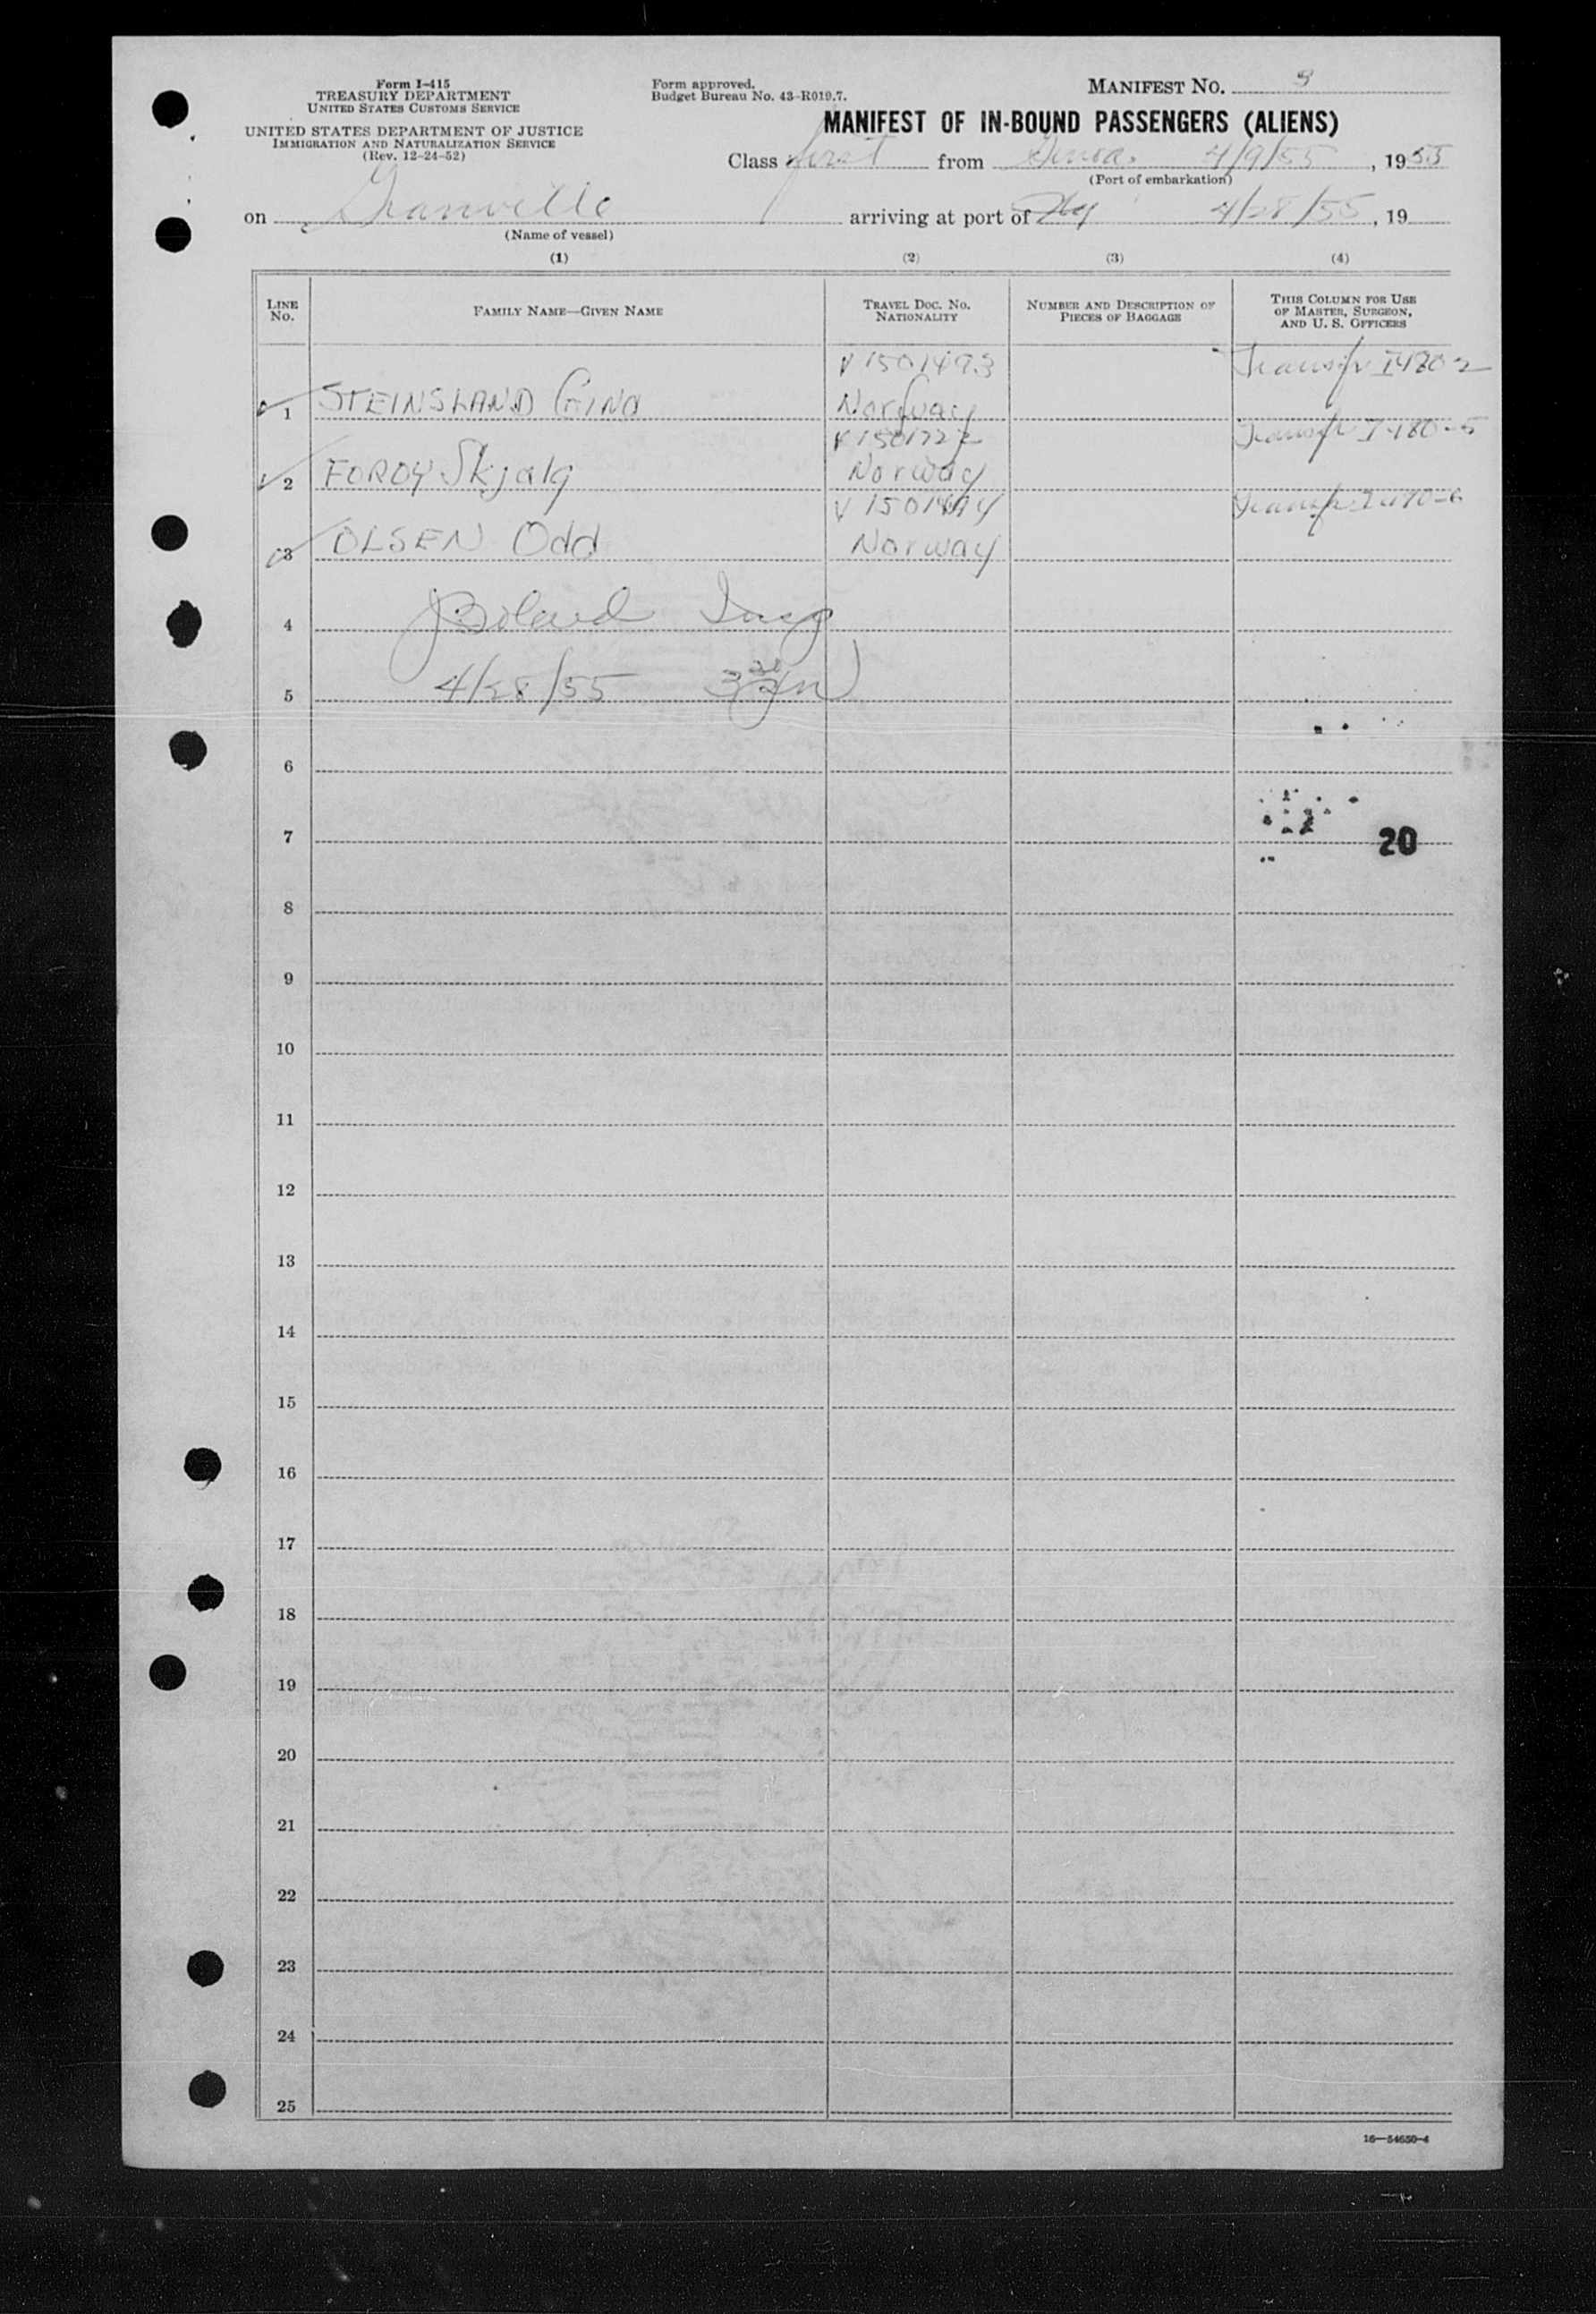 Form I-415
TREASURY DEPARTMENT
UNITED STATES CUSTOMS SERVICE
UNITED STATES DEPARTMENT OF JUSTICE
IMMIGRATION AND NATURALIZATION SERVICE
(Rev. 12-24-52)
Form approved.
Budget Bureau No. 43-R019.7.
MANIFEST NO. 3
MANIFEST OF IN-BOUND PASSENGERS (ALIENS)
Class first from Genoa. 4/9/55, 1955
(Port of embarkation)
on Granville arriving at port of 4/28/55, 19
(Name of vessel)
(1) (2) (3) (4)
LINE NO. FAMILY NAME—GIVEN NAME TRAVEL DOC. NO. NATIONALITY NUMBER AND DESCRIPTION OF PIECES OF BAGGAGE THIS COLUMN FOR USE OF MASTER, SURGEON, AND U. S. OFFICERS
V1501493 Transfr I480-2
1 STEINSLAND Gina Norway
Transfr I-480-5
2 Skjalg Norway
V
3 OLSEN Odd Norway
4
5 4/28/55
6
7 20
8
9
10
11
12
13
14
15
16
17
18
19
20
21
22
23
24
25
16—54650-4